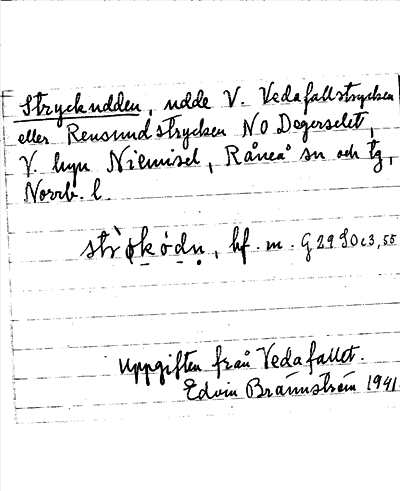 Stryckudden, udde V. Vedafallstrycken
eller Rensundstrycken NO Degerselet,
V. byn Niemisel, Råneå sn och tg,
Norrb. l.
bf. m. G 29 S0c3,55
Uppgiften från Vedafallet.
Edvin Brännström 1941